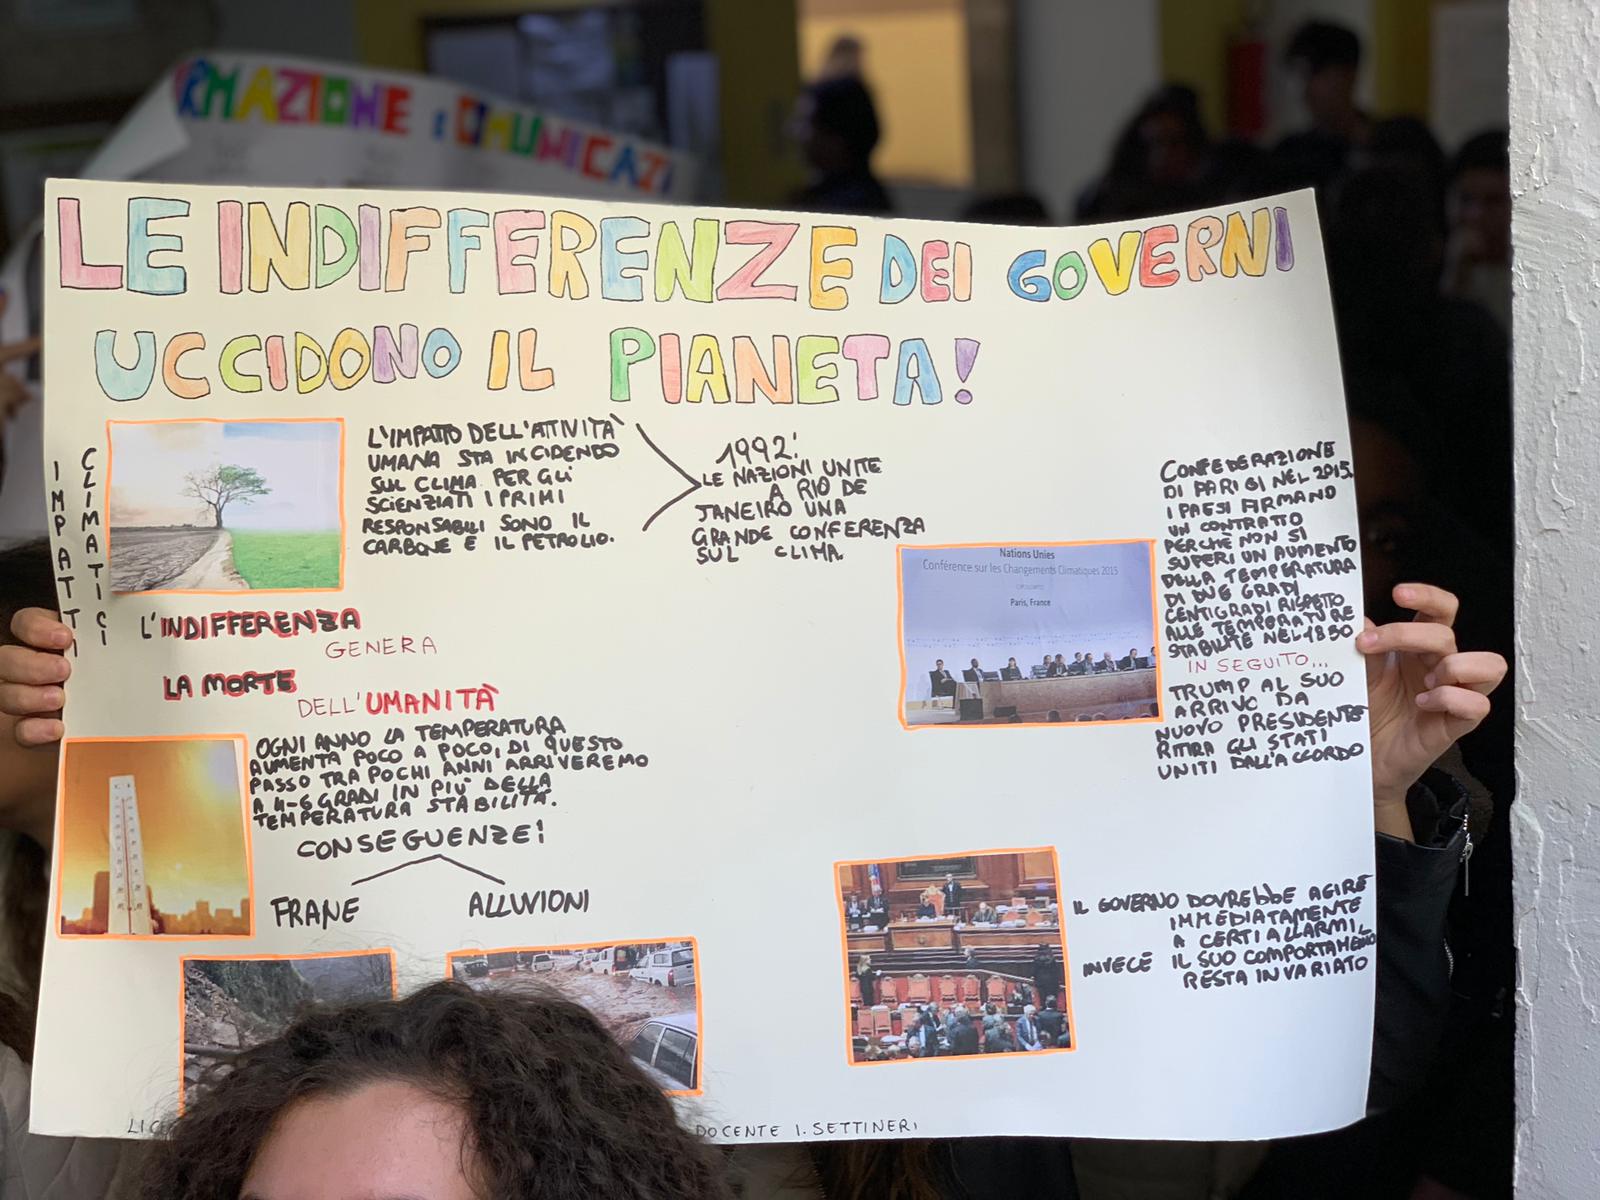 RMAZIONE E COMUNICAZI
LE INDIFFERENZE DEI GOVERNI
UCCIDONO IL PIANETA!
IMPATTI
CLIMATICI
L'IMPATTO DELL'ATTIVITÀ
UMANA STA INCIDENDO
SUL CLIMA. PER GLI
SCIENZIATI I PRIMI
RESPONSABILI SONO IL
CARBONE E IL PETROLIO.
1992:
LE NAZIONI UNITE
A RIO DE
JANEIRO UNA
GRANDE CONFERENZA
SUL CLIMA.
Nations Unies
Conférence sur les Changements Climatiques 2015
Paris, France
CONFEDERAZIONE
DI PARIGI NEL 2015.
I PAESI FIRMANO
UN CONTRATTO
PERCHE NON SI
SUPERI UN AUMENTO
DELLA TEMPERATURA
DI DUE GRADI
CENTIGRADI RISPETTO
ALLE TEMPERATURE
STABILITE NEL 1850
IN SEGUITO...
TRUMP AL SUO
ARRIVO DA
NUOVO PRESIDENTE
RITIRA GLI STATI
UNITI DALL'ACCORDO
L'INDIFFERENZA
GENERA
LA MORTE
DELL'UMANITÀ
OGNI ANNO LA TEMPERATURA
AUMENTA POCO A POCO, DI QUESTO
PASSO TRA POCHI ANNI ARRIVEREMO
A 4-6 GRADI IN PIÙ DELLA
TEMPERATURA STABILITA.
CONSEGUENZE!
FRANE
ALLUVIONI
IL GOVERNO DOVREBBE AGIRE
IMMEDIATAMENTE
A CERTI ALLARMI,
INVECE IL SUO COMPORTAMENTO
RESTA INVARIATO
DOCENTE I. SETTINERI